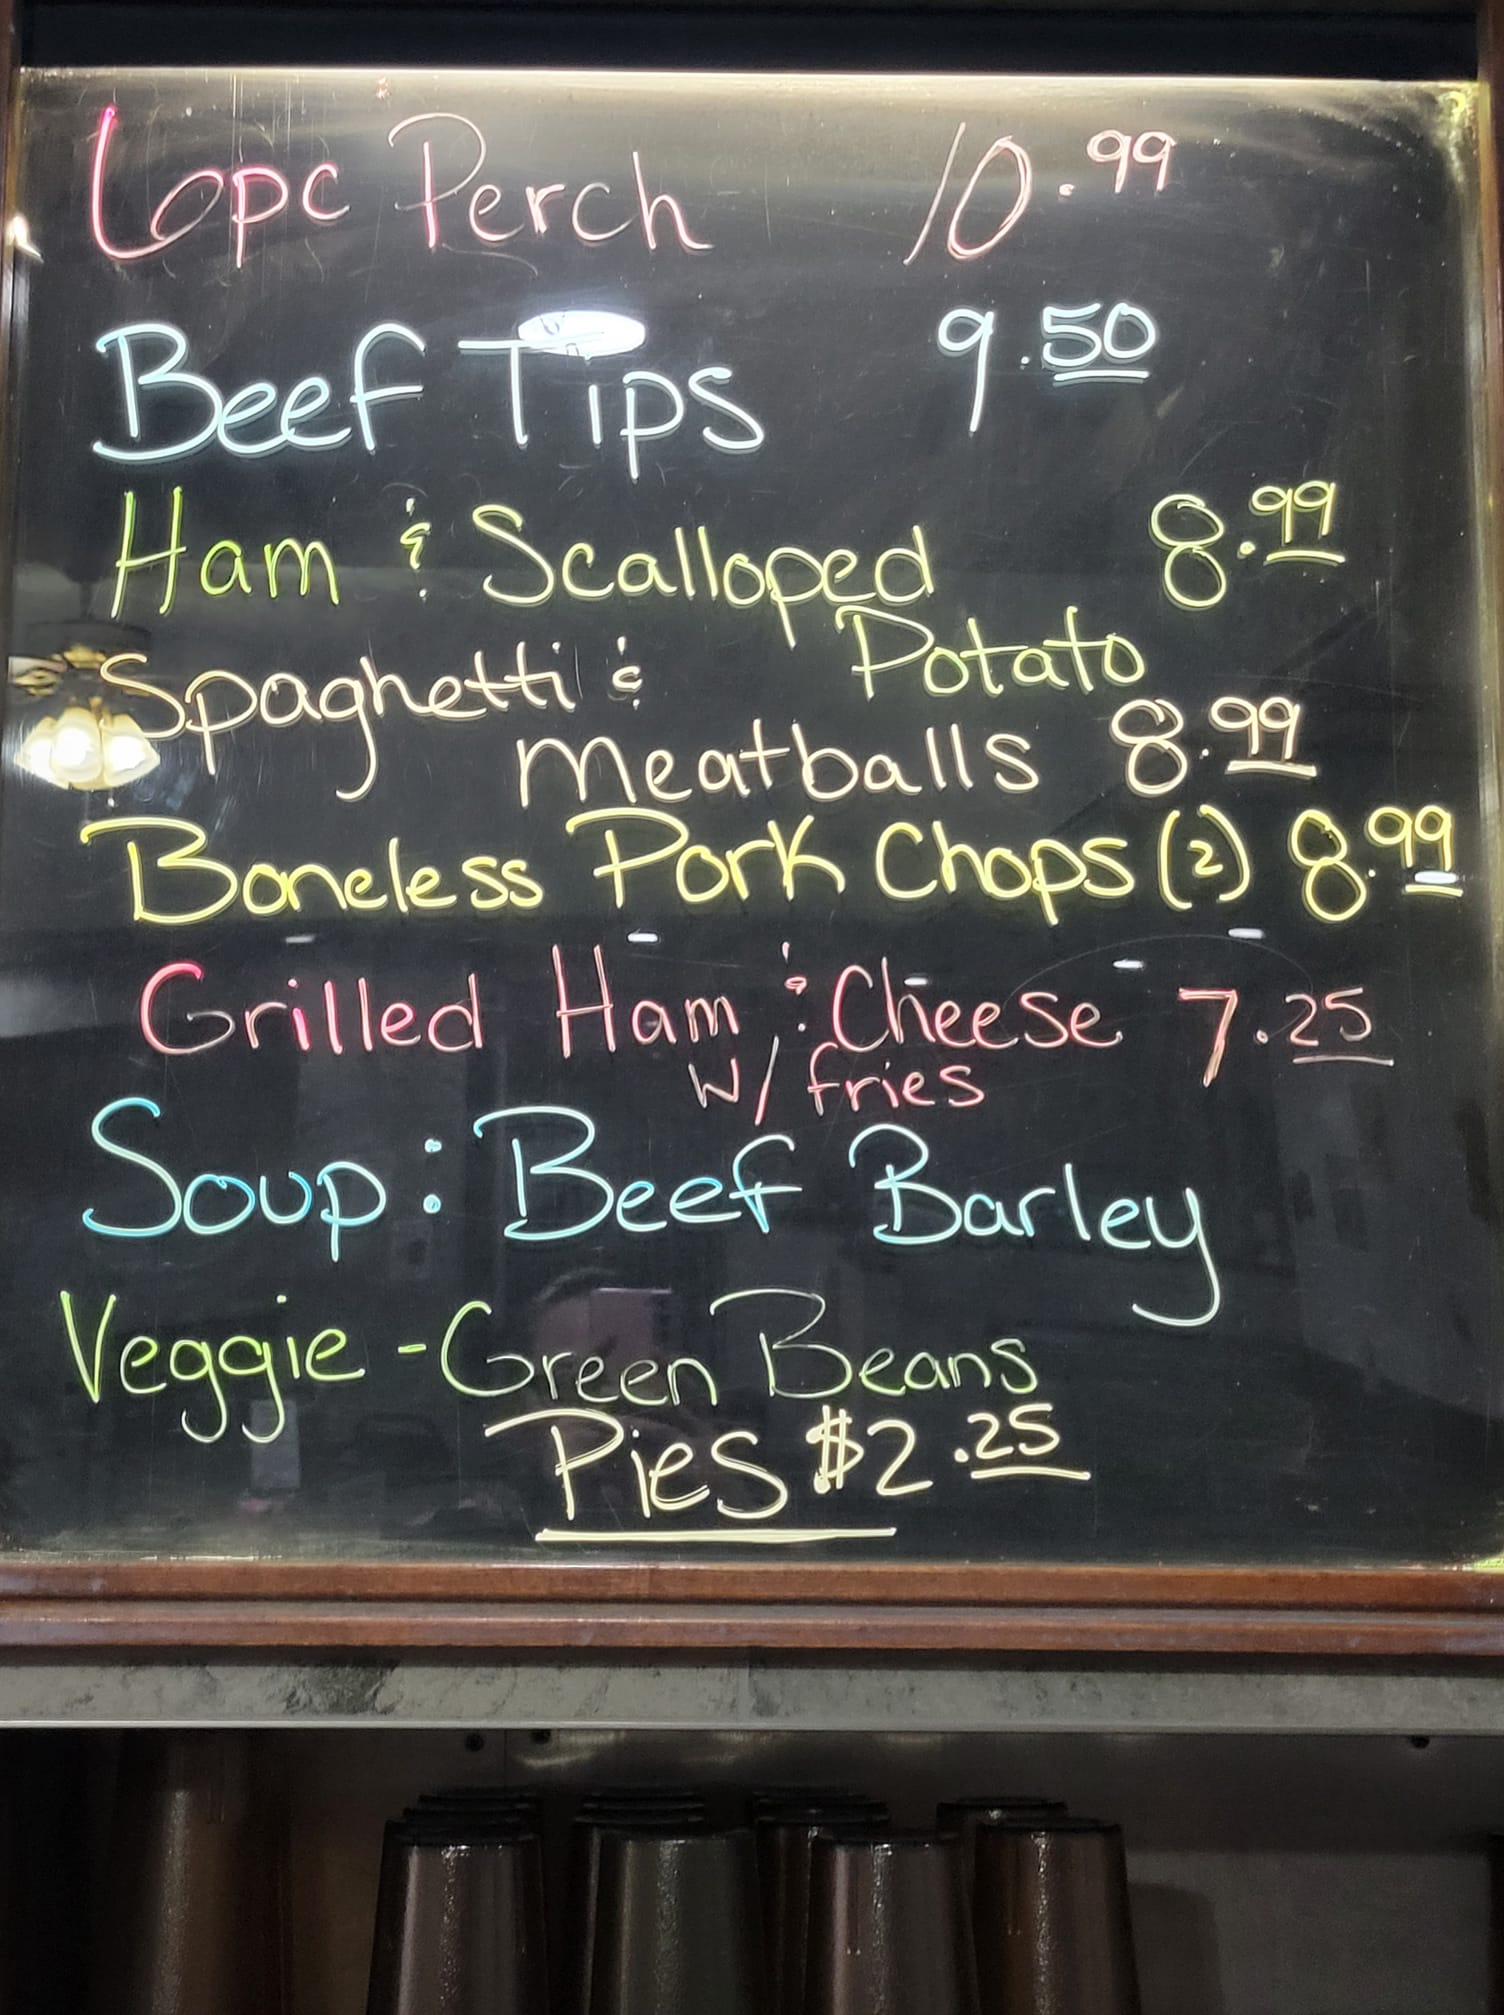 6pc Perch 10.99
Beef Tips 9.50
Ham & Scalloped 8.99
Potato
Spaghetti &
Meatballs 8.99
Boneless Pork Chops (2) 8.99
Grilled Ham & Cheese 7.25
W/ fries
Soup: Beef Barley
Veggie - Green Beans
Pies $2.25